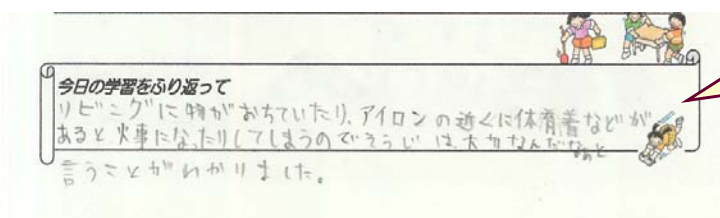 今日の学習をふり返って
リビングに物がおちていたり、アイロンの近くに体育着などが
あると火事になったりしてしまうのでそうじは、大切なんだなぁと
言うことがわかりました。